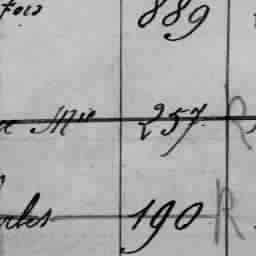 fois 889
Mie 257 R
rles 190 R